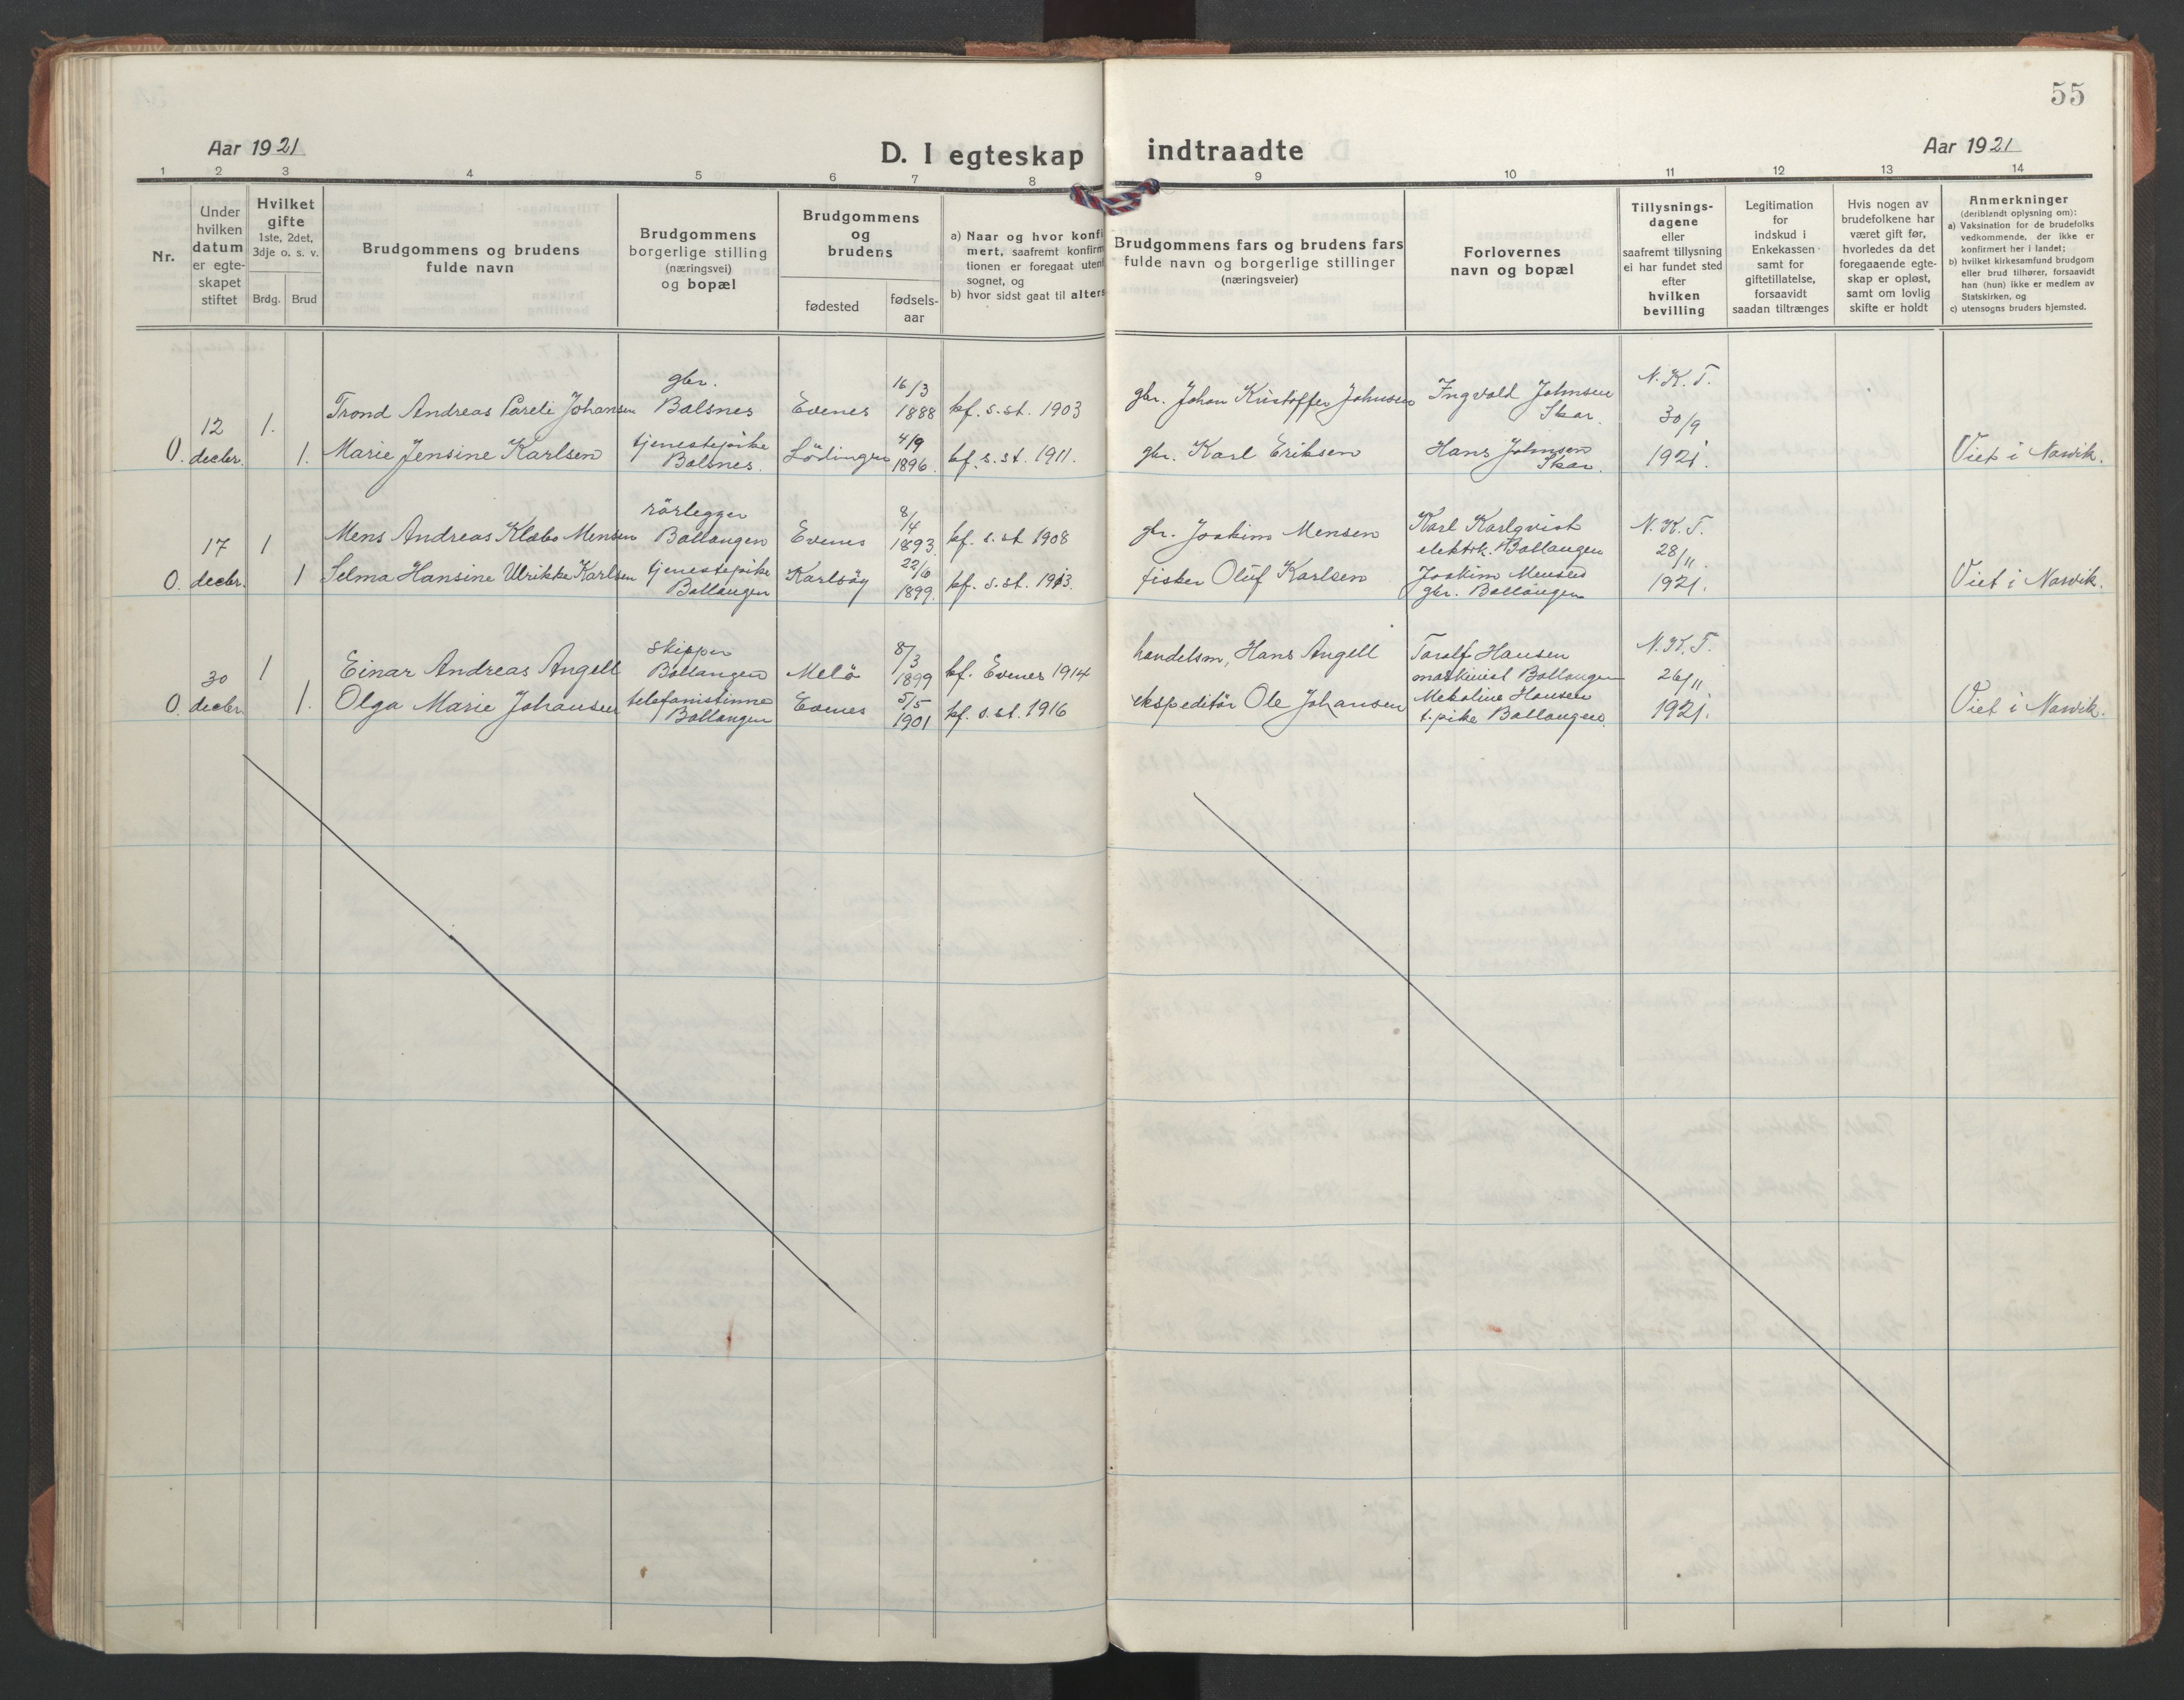 55
Aar 1921
D. I egteskap indtraadte
Aar 1921
1 2 3 4 5 6 7 8 9 10 11 12 13 14
Nr.
Under
hvilken
datum
er egte-
skapet
stiftet
Hvilket
gifte
1ste, 2det,
3dje o. s. v.
Brdg. Brud
Brudgommens og brudens
fulde navn
Brudgommens
borgerlige stilling
(næringsvei)
og bopæl
Brudgommens
og
brudens
fødested
fødsels-
aar
a) Naar og hvor konfi
mert, saafremt konfirm
tionen er foregaat uten
sognet, og
b) hvor sidst gaat til alters
Brudgommens fars og brudens fars
fulde navn og borgerlige stillinger
(næringsveier)
Forlovernes
navn og bopæl
Tillysnings-
dagene
eller
saafremt tillysning
ei har fundet sted
efter
hvilken
bevilling
Legitimation
for
indskud i
Enkekassen
samt for
giftetillatelse,
forsaavidt
saadan tiltrænges
Hvis nogen av
brudefolkene har
været gift før,
hvorledes da det
foregaaende egte-
skap er opløst,
samt om lovlig
skifte er holdt
Anmerkninger
(deriblandt oplysning om):
a) Vaksination for de brudefolks
vedkommende, der ikke er
konfirmert her i landet;
b) hvilket kirkesamfund brudgom
eller brud tilhører, forsaavidt
han (hun) ikke er medlem av
Statskirken, og
c) utensogns bruders hjemsted.
0.
12
decbr.
1.
1.
Trond Andreas Pareli Johansen
Marie Jensine Karlsen
gbr.
Balsnes
tjenestepike
Balsnes.
Evenes
Lödingen
16/3
1888
4/9
1896.
kf. s. st. 1903
kf. s. st. 1911.
gbr. Johan Kristoffer Johnsen
gbr. Karl Eriksen
Ingvald Johnsen
Skar.
Hans Johnsen
Skar.
N.K.T.
30/9
1921.
Viet i Narvik.
0.
17
decbr.
1
1
Mens Andreas Klæbo Mensen
Selma Hansine Ulrikke Karlsen
rörlegger
Ballangen
tjenestepike
Ballangen
Evenes
Karlsöy
8/4
1893.
22/6
1899.
kf. s. st. 1908
kf. s. st. 1913.
gbr. Joakim Mensen
fisker Oluf Karlsen
Karl Karlqvist
elektrk. Ballangen
Joakim Mensen
gbr. Ballangen
N.K.T.
28/11.
1921.
Viet i Narvik.
0.
30
decbr.
1
1.
Einar Andreas Angell
Olga Marie Johansen
skipper
Ballangen
telefonistinne
Ballangen
Melö
Evenes
8/3
1899
5/5
1901
kf. Evenes 1914
kf. s. st. 1916
handelsm. Hans Angell
ekspeditör Ole Johansen
Toralf Hansen
maskinist Ballangen
Hansen
t.pike Ballangen.
N.K.T.
26/11
1921.
Viet i Narvik.